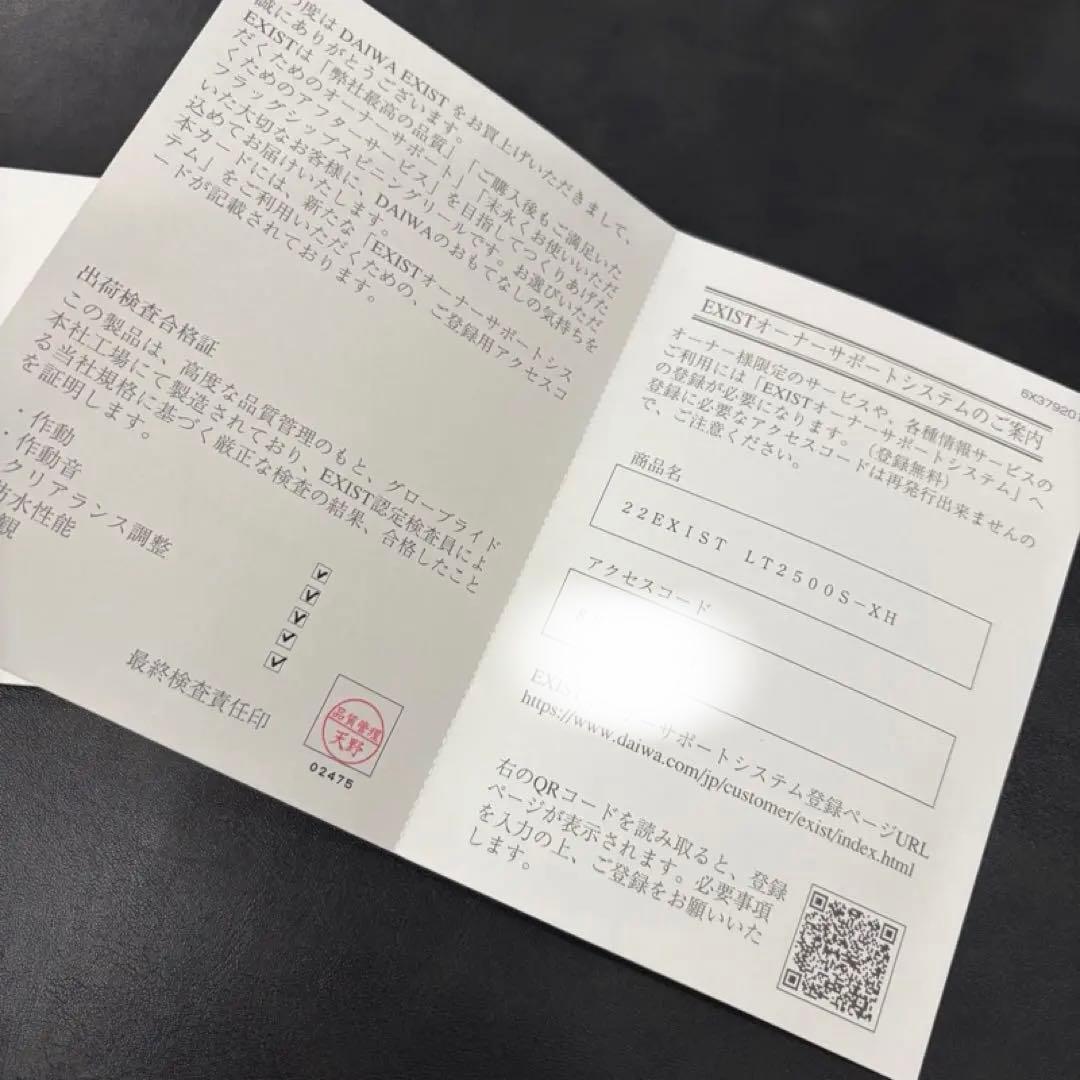 の度は DAIWA EXIST をお買上げいただきまして、
誠にありがとうございます。
EXISTは「弊社最高の品質」「ご購入後もご満足いた
だくためのオーナーサポート」「末永くお使いいただ
くためのアフターサービス」を目指してつくりあげた
フラッグシップスピニングリールです。お選びいただ
いた大切なお客様に、DAIWAのおもてなしの気持ちを
込めてお届けいたします。
本カードには、新たな「EXISTオーナーサポートシス
テム」をご利用いただくための、ご登録用アクセスコ
ードが記載されております。
出荷検査合格証
この製品は、高度な品質管理のもと、グローブライド
本社工場にて製造されており、EXIST認定検査員によ
る当社規格に基づく厳正な検査の結果、合格したこと
を証明します。
・作動
・作動音
クリアランス調整
防水性能
観
最終検査責任印
品質管理
天野
02475
6X379201
EXISTオーナーサポートシステムのご案内
オーナー様限定のサービスや、各種情報サービスの
ご利用には「EXISTオーナーサポートシステム」へ
の登録が必要になります。(登録無料)
登録に必要なアクセスコードは再発行出来ませんの
で、ご注意ください。
商品名
22EXIST LT2500S-XH
アクセスコード
EXIS
ーサポートシステム登録ページURL
https://www.daiwa.com/jp/customer/exist/index.html
右のQRコードを読み取ると、登録
ページが表示されます。必要事項
を入力の上、ご登録をお願いいた
します。